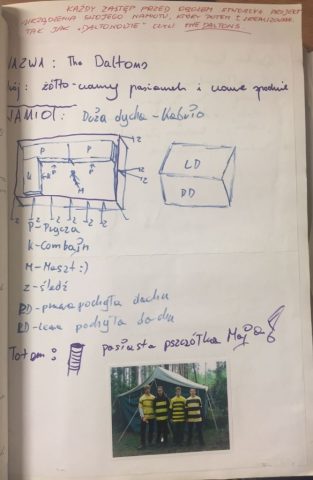 KAŻDY ZASTĘP PRZED OBOZEM STWORZYŁ PROJEKT
URZĄDZENIA SWOJEGO NAMIOTU, KTÓRY POTEM ZREALIZOWAŁ
TAK JAK „DALTONOWIE” CZYLI THE DALTONS.
NAZWA: The Daltons
żółto-czarny pasiasty i czarne spodnie
NAMIOT: Duża dycha - Kabrio
P P
K
M
z z z z z z z
LD
PD
P-Prycza
K-Combajn
M-Maszt :)
Z-śledź
PD-prawa pochyła dachu
LD-lewa pochyła dachu
Totem: pasiasta pszczółka Maja